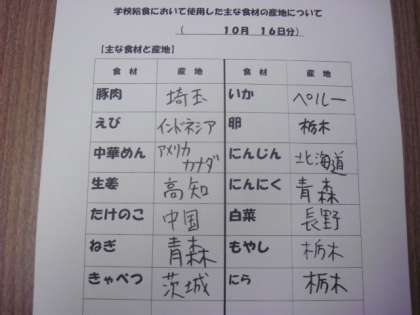 学校給食において使用した主な食材の産地について
( 10月 16日分)
【主な食材と産地】
食材 産地 食材 産地
豚肉 埼玉 いか ペルー
えび インドネシア 卵 栃木
中華めん アメリカ カナダ にんじん 北海道
生姜 高知 にんにく 青森
たけのこ 中国 白菜 長野
ねぎ 青森 もやし 栃木
きゃべつ 茨城 にら 栃木